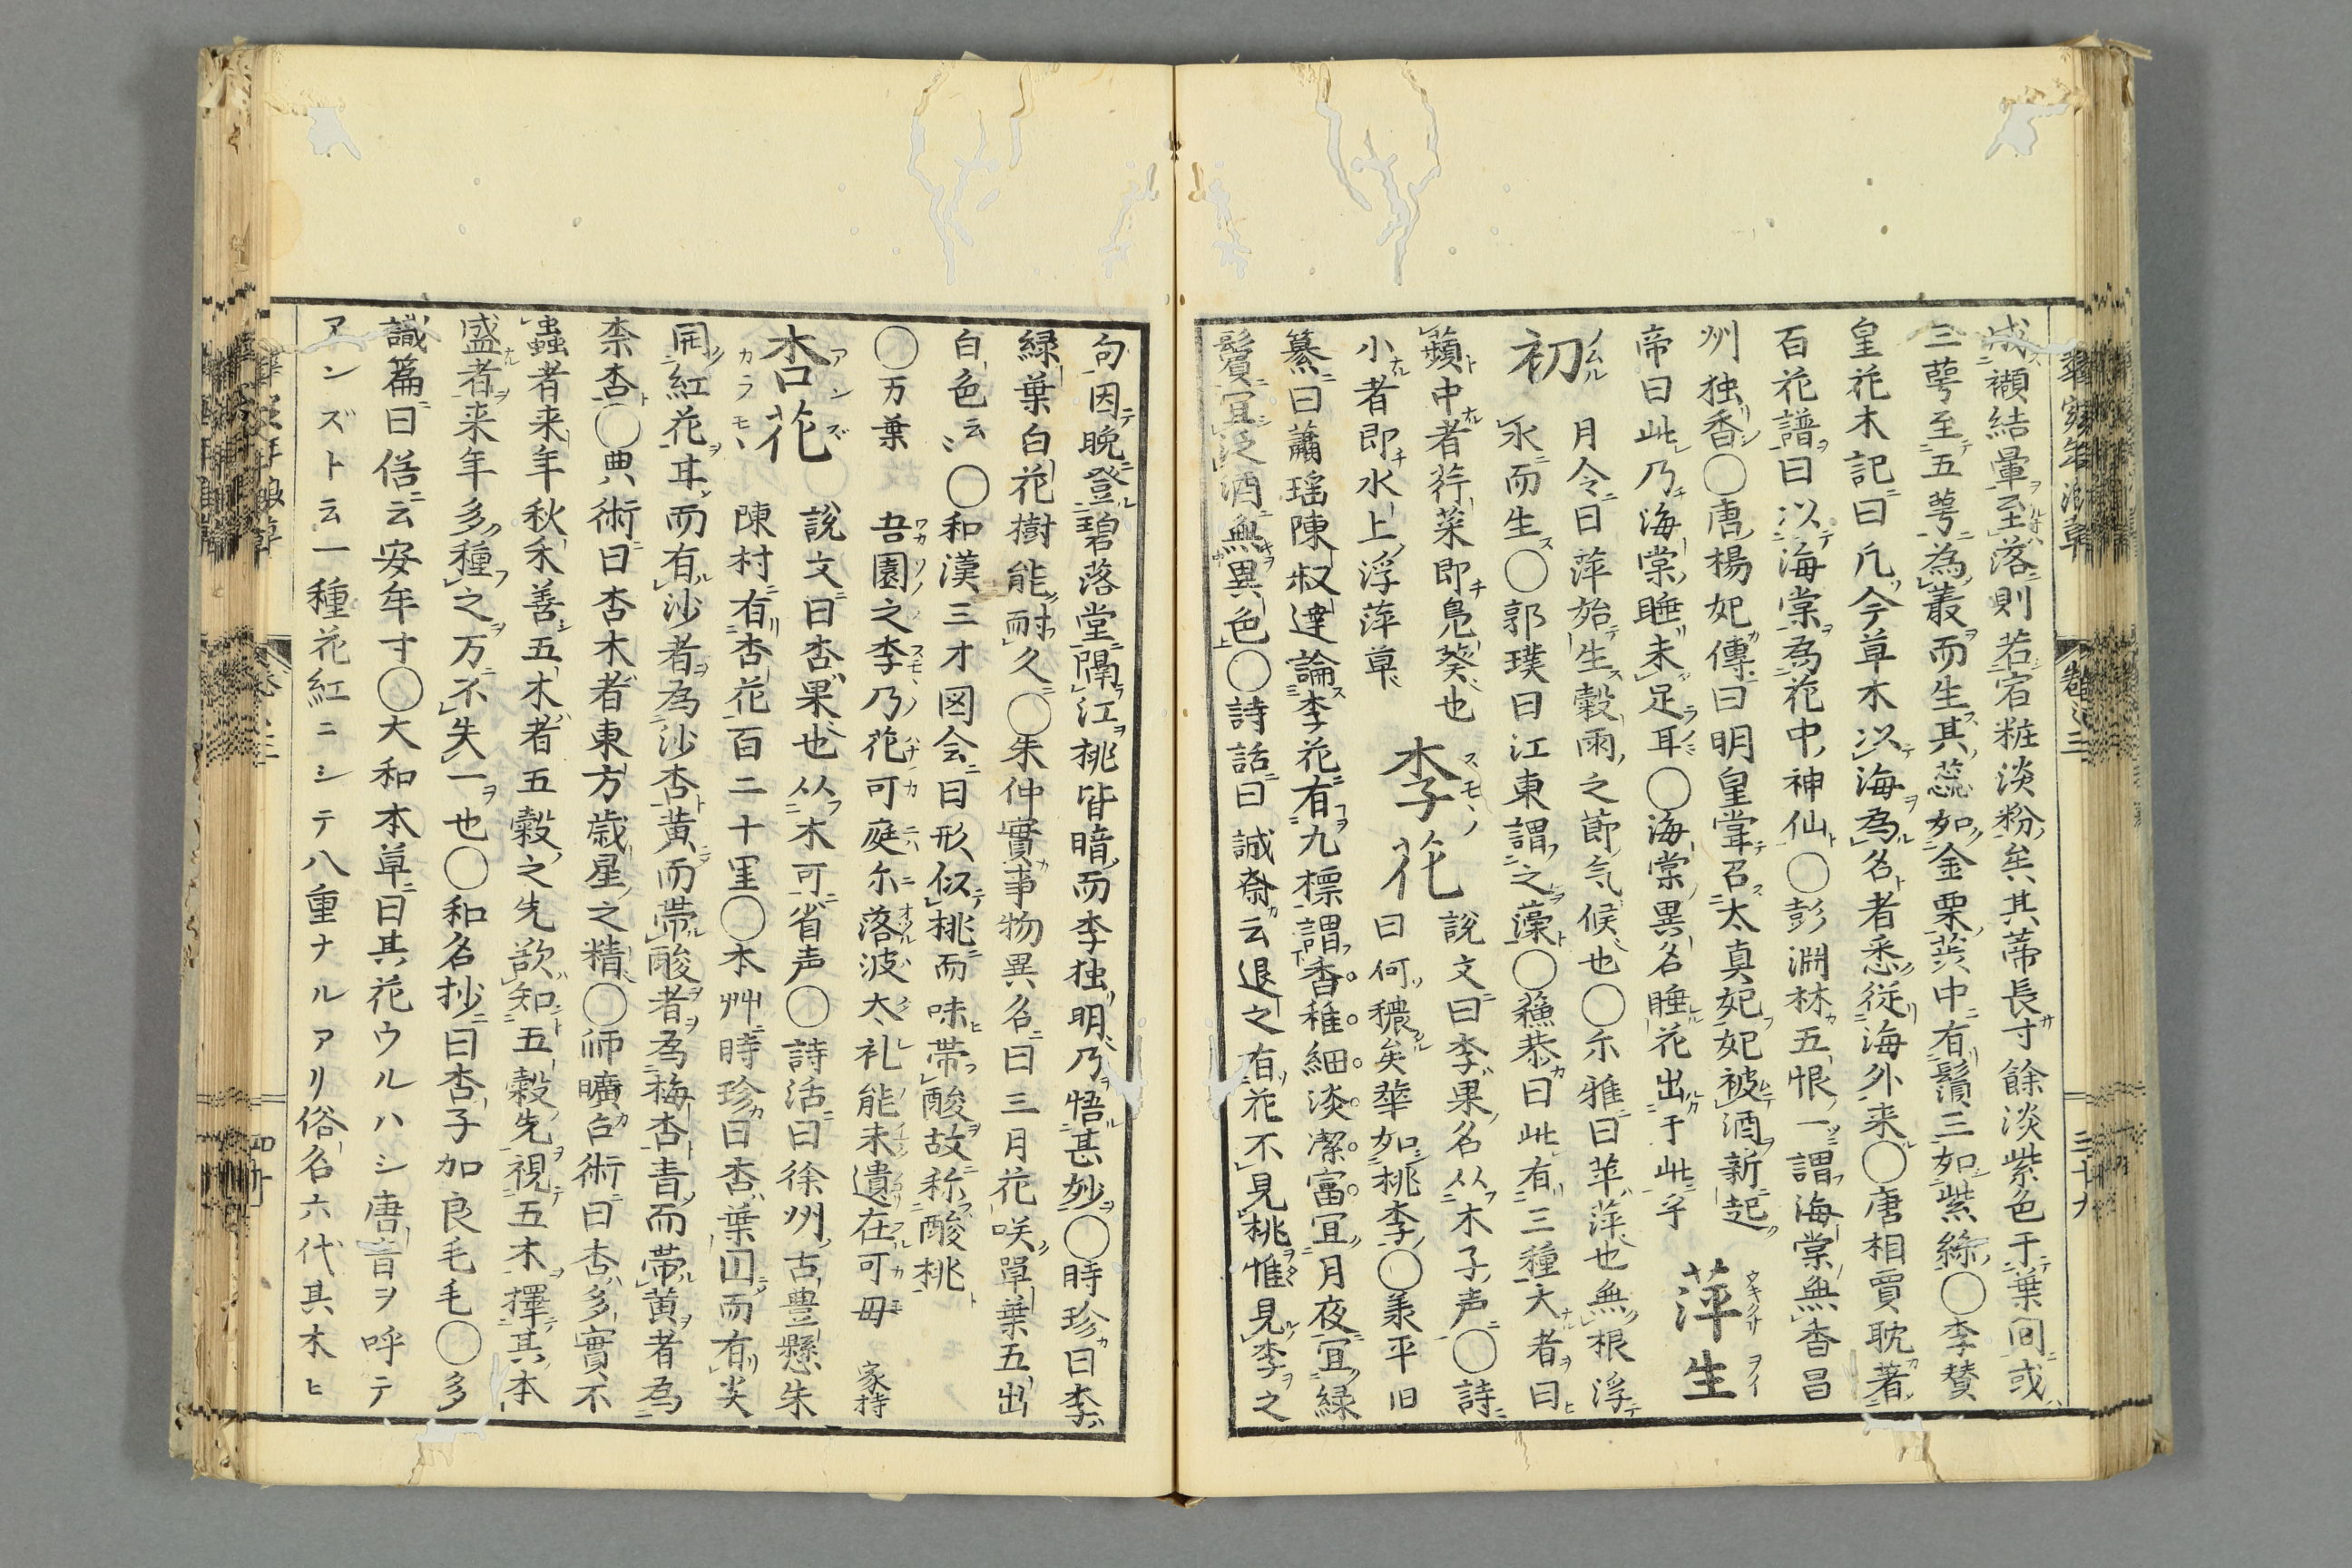 成纈結暈至落則若宿粧淡粉矣其蒂長寸餘淡紫色于葉間或
三萼至五萼為叢而生其蕊如金粟蕊中有鬚三如紫絲〇李賛
皇花木記曰凡今草木以海為名者悉従海外来〇唐相賈耽著
百花譜曰以海棠為花中神仙〇彭淵林五恨一謂海棠無香昌
州独香〇唐楊妃傳曰明皇甞召太真妃妃被酒新起
帝曰此乃海棠睡未足耳〇海棠異名睡花出于此乎 萍生
初 月令曰萍始生穀雨之節気候也〇尓雅曰苹萍也無根浮
水而生〇郭璞曰江東謂之藻〇蘓恭曰此有三種大者曰
蘋中者荇菜即鳧葵也 李花 説文曰李果名从木子声〇詩
小者即水上浮萍草 曰何穠矣華如桃李〇羕平旧
纂曰蕭瑶陳叔達論李花有九標謂香稚細淡潔富宜月夜宜緑
鬢宜泛酒無異色〇詩話曰誠斎云退之有花不見桃惟見李之
句因晩登碧落堂隔江桃皆暗而李独明乃悟甚妙〇時珍曰李
緑葉白花樹能耐久〇朱仲實事物異名曰三月花咲單葉五出
白色云〻〇和漢三才図会曰形似桃而味帯酸故称酸桃
〇万葉 吾園之李乃花可庭尓落波太礼能未遺在可母 家持
杏花 説文曰杏果也从木可省声〇詩活曰徐州古豊懸朱
陳村有杏花百二十里〇本艸時珍曰杏葉円而有尖
開紅花耳而有沙者為沙杏黄而帯酸者為梅杏青而帯黄者為
柰杏〇典術曰杏木者東方歳星之精〇師曠占術曰杏多實不
蟲者来年秋禾善五木者五穀之先欲知五穀先視五木擇其本
盛者来年多種之万不失一也〇和名抄曰杏子加良毛毛〇多
識篇曰俗云安牟寸〇大和本草曰其花ウルハシ唐音ヲ呼テ
アンズト云一種花紅ニシテ八重ナルアリ俗名六代其木ヒ